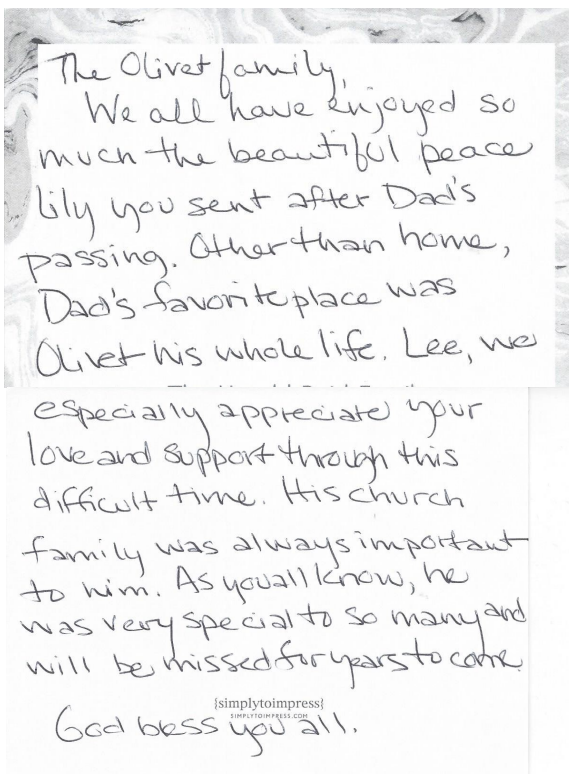 The Olivet family,
We all have enjoyed so
much the beautiful peace
lily you sent after Dad's
passing. Other than home,
Dad's favorite place was
Olivet his whole life. Lee, we
especially appreciate your
love and support through this
difficult time. His church
family was always important
to him. As you all know, he
was very special to so many and
will be missed for years to come.
{simplytoimpress}
SIMPLYTOIMPRESS.COM
God bless you all.